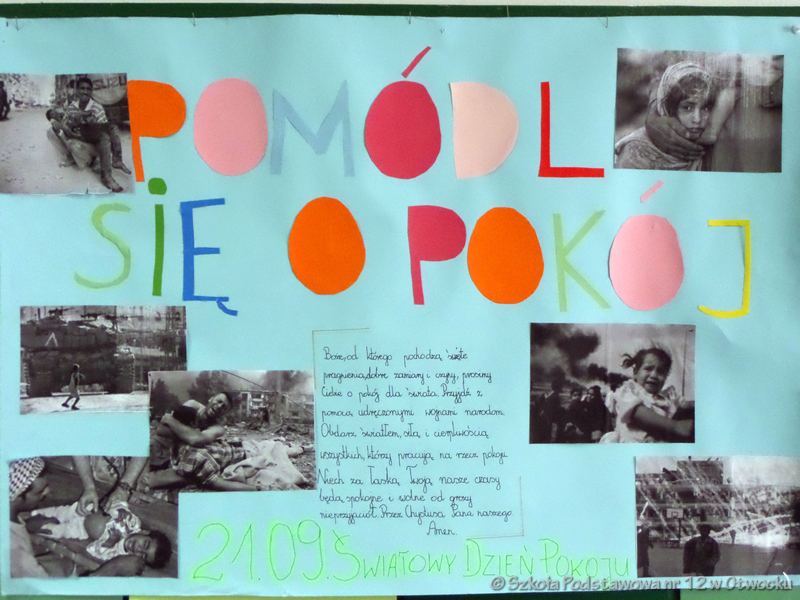 POMÓDL
SIĘ O POKÓJ
Boże, od którego pochodzą święte
pragnienia, dobre zamiary i czyny, prosimy
Ciebie o pokój dla świata. Przyjdź z
pomocą udręczonymi wojnami narodom.
Obdarz światłem, siłą i cierpliwością
wszystkich, którzy pracują na rzecz pokoju.
Niech za Łaską Twoją nasze czasy
będą spokojne i wolne od grozy
nieprzyjaciół. Przez Chrystusa Pana naszego.
Amen.
21.09. ŚWIATOWY DZIEŃ POKOJU
© Szkoła Podstawowa nr 12 w Otwocku